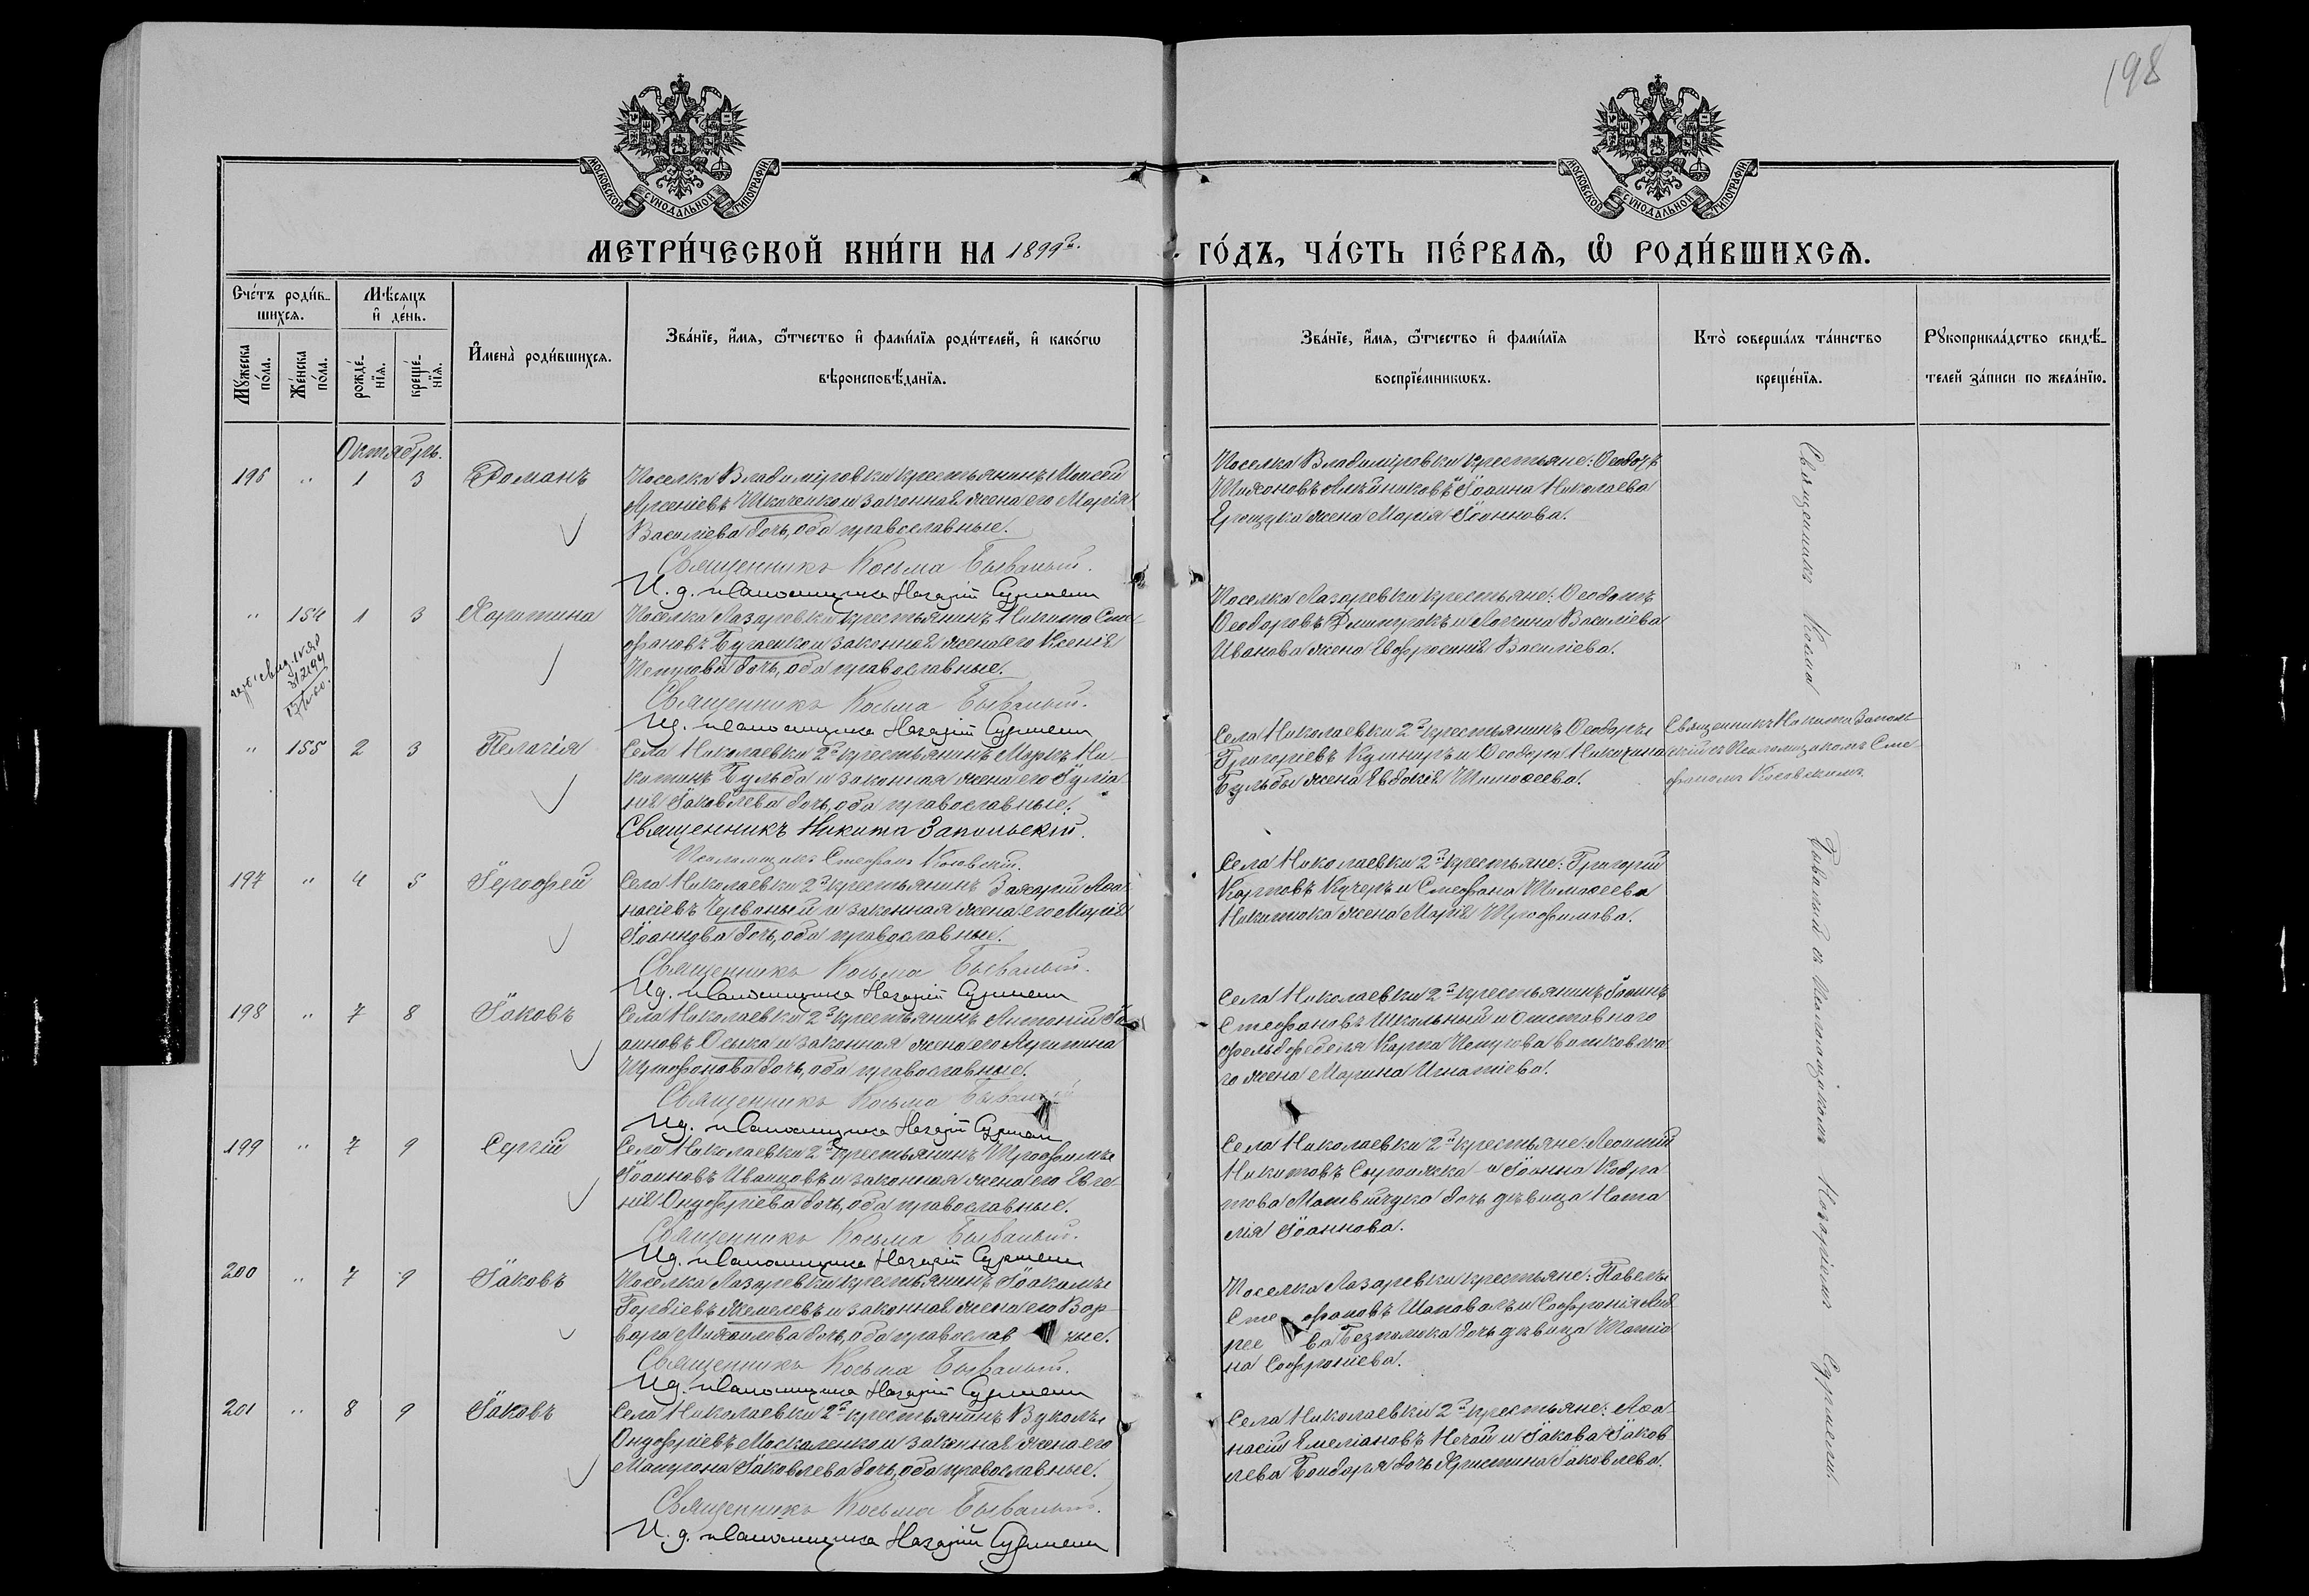 198
МОСКОВСКОЙ СѴНОДАЛЬНОЙ ТИПОГРАФІИ
МОСКОВСКОЙ СѴНОДАЛЬНОЙ ТИПОГРАФІИ
МЕТРИ́ЧЕСКОЙ КНИ́ГИ НА 1899й
ГО́ДЪ, ЧА́СТЬ ПЕ́РВАѦ, Ѽ РОДИ́ВШИХСѦ.
Сче́тъ роди́в-
шихсѧ.
Мꙋ́жеска по́ла.
Же́нска по́ла.
Мѣ́сѧцъ
и҆ де́нь.
рожде́-
нїѧ.
креще́-
нїѧ.
И҆мена̀ роди́вшихсѧ.
Зва́нїе, и҆́мѧ, ѻ҆́тчество и҆ фами́лїѧ роди́телей, и҆ како́гѡ
вѣроисповѣ́данїѧ.
Зва́нїе, и҆́мѧ, ѻ҆́тчество и҆ фами́лїѧ
воспрїе́мникѡвъ.
Кто̀ соверша́лъ та́инство
креще́нїѧ.
Рꙋкоприкла́дство свидѣ́-
телей за́писи по жела́нїю.
Октябрь.
196 " 1 3 Романъ
Поселка Владиміровки крестьянинъ Моисей
Арсеніевъ Шкаченко и законная жена его Марія
Василіева дочь, оба православные.
Священникъ Косьма Бываный.
И. д. псаломщика Назарій Сурмели
Поселка Владиміровки крестьяне: Ѳеодоръ
Тихоновъ Алѣйниковъ и Іоанна Николаева
Грощука жена Марія Іоаннова.
" 154 1 3 Харитина
Поселка Лазаревки крестьянинъ Никита Сте-
фановъ Бугаенко и законная жена его Ксенія
Петрова дочь, оба православные.
Священникъ Косьма Бываный.
И. д. псаломщика Назарій Сурмели
Поселка Лазаревки крестьяне: Ѳеодотъ
Ѳеодоровъ и Логина Василіева
Иванова жена Евфросинія Василіева.
" 155 2 3 Пелагія
Села Николаевки 2й крестьянинъ Маркъ Ни-
китинъ Бульба и законная жена его Іуліа-
нія Іаковлева дочь, оба православные.
Священникъ Никита Запольскій.
Псаломщикъ Стефанъ Косовскій.
Села Николаевки 2й крестьянинъ Ѳеодоръ
Григоріевъ Кушниръ и Ѳеодора Никитина
Бульбы жена Евдокія Тимоѳеева.
Священникъ Никита Заполь-
скій съ Псаломщикомъ Сте-
фаномъ Косовскимъ
197 " 4 5 Іероѳей
Села Николаевки 2й крестьянинъ Захарій Аѳа-
насіевъ Червоный и законная жена его Марія
Іоаннова дочь, оба православные.
Священникъ Косьма Бываный.
И. д. псаломщика Назарій Сурмели
Села Николаевки 2й крестьяне: Григорій
Карповъ Кучеръ и Стефана Тимоѳеева
Никитюка жена Марія Трофимова.
198 " 7 8 Іаковъ
Села Николаевки 2й крестьянинъ Антоній Іо-
анновъ Осыка и законная жена его Агрипина
Трифонова дочь, оба православные.
Священникъ Косьма Бываный
И. д. псаломщика Назарій Сурмели
Села Николаевки 2й крестьянинъ Іоаннъ
Стефановъ Школьный и отставного
фельдфебеля Карпа Петрова
го жена Марина Игнатіева.
199 " 7 9 Сергій
Села Николаевки 2й крестьянинъ Трофимъ
Іоанновъ Иванцовъ и законная жена его Евге-
нія Онуфріева дочь, оба православные.
Священникъ Косьма Бываный.
И. д. псаломщика Назарій Сурмели
Села Николаевки 2й крестьяне: Леонтій
Никитовъ и Іоанна Кодра-
това Матвійчука дочь дѣвица Ната
лія Іоаннова.
200 " 7 9 Іаковъ
Поселка Лазаревки крестьянинъ Іоакимъ
Гордіевъ Жемелевъ и законная жена его Вар-
вара Михаилева дочь, оба православ ные.
Священникъ Косьма Бываный.
И. д. псаломщика Назарій Сурмели
Поселка Лазаревки крестьяне: Павелъ
Сте фановъ Шаповалъ и Софронія Анд
рее ва дочь дѣвица Татіа
на Софроніева.
201 " 8 9 Іаковъ
Села Николаевки 2й крестьянинъ Вуколъ
Онуфріевъ Москаленко и законная жена его
Матрона Іаковлева дочь, оба православные.
Священникъ Косьма Бываный.
И. д. псаломщика Назарій Сурмели
Села Николаевки 2й крестьяне: Аѳа-
насій Емеліановъ Нечай и Іакова Іаков
лева Бондаря дочь Христина Іаковлева.
Священникъ Косьма Бываный съ Псаломщикомъ Назаріемъ Сурмели